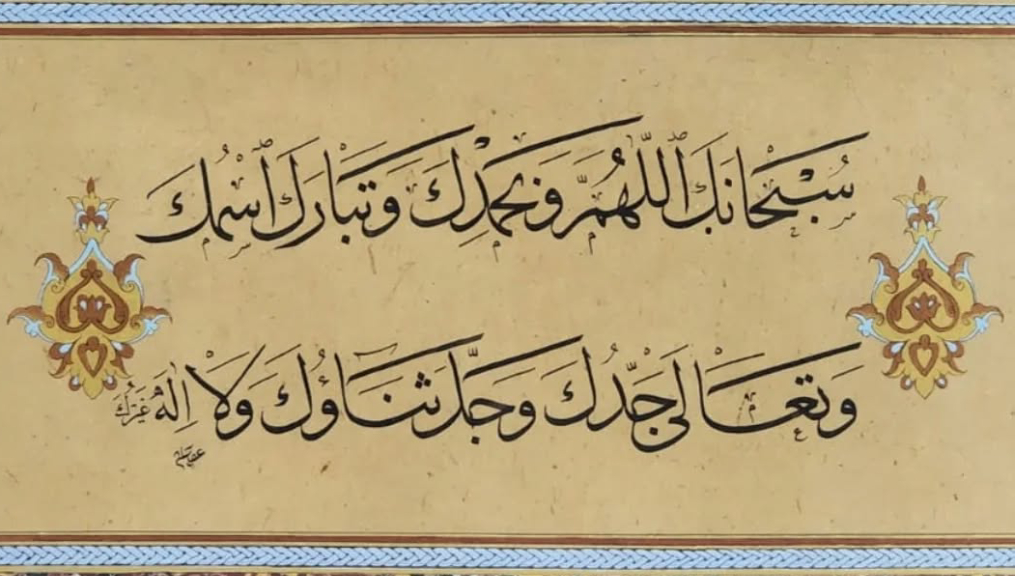 سُبْحَانَكَ اللّٰهُمَّ وَبِحَمْدِكَ وَتَبَارَكَ اسْمُكَ
وَتَعَالَى جَدُّكَ وَجَلَّ ثَنَاؤُكَ وَلَا اِلٰهَ غَيْرُكَ